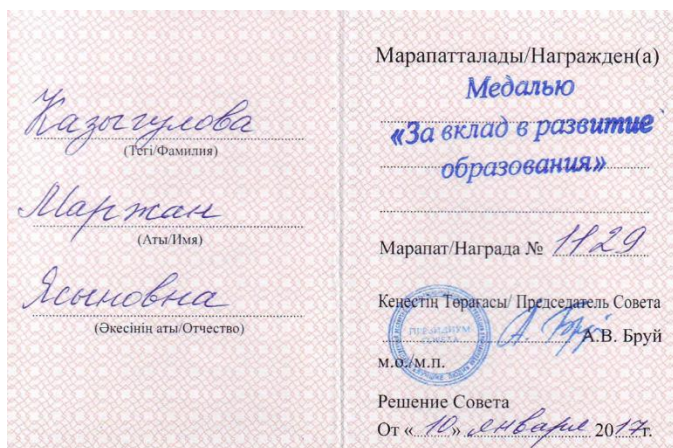 Казыгулова
(Тегі/Фамилия)
Маржан
(Аты/Имя)
Ясыновна
(Әкесінің аты/Отчество)
Марапатталады/Награжден(а)
Медалью
«За вклад в развитие
образования»
Марапат/Награда № 1129
Кеңестің Төрағасы/ Председатель Совета
А.В. Бруй
ПРЕЗИДИУМ
СОВЕТА
м.о./м.п.
Решение Совета
От « 10 » января 2017г.